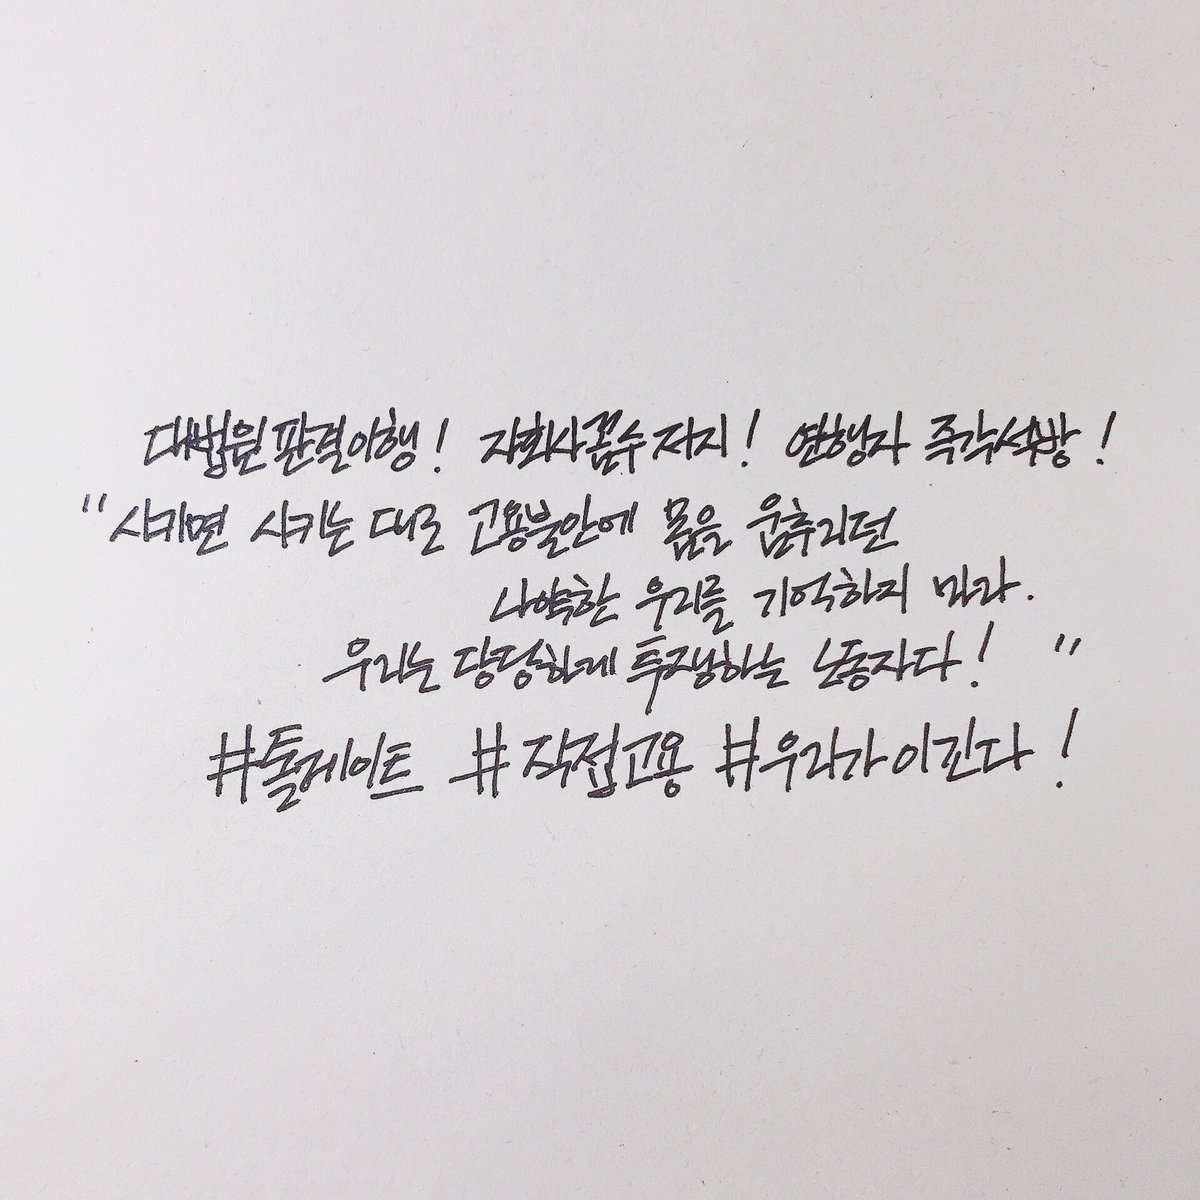 대법원판결이행! 자회사꼼수저지! 연행자 즉각석방!
"시키면 시키는 대로 고용불안에 몸을 움추리던
나약한 우리를 기억하지 마라.
우리는 당당하게 투쟁하는 노동자다! "
#톨게이트 #직접고용 #우리가이긴다!